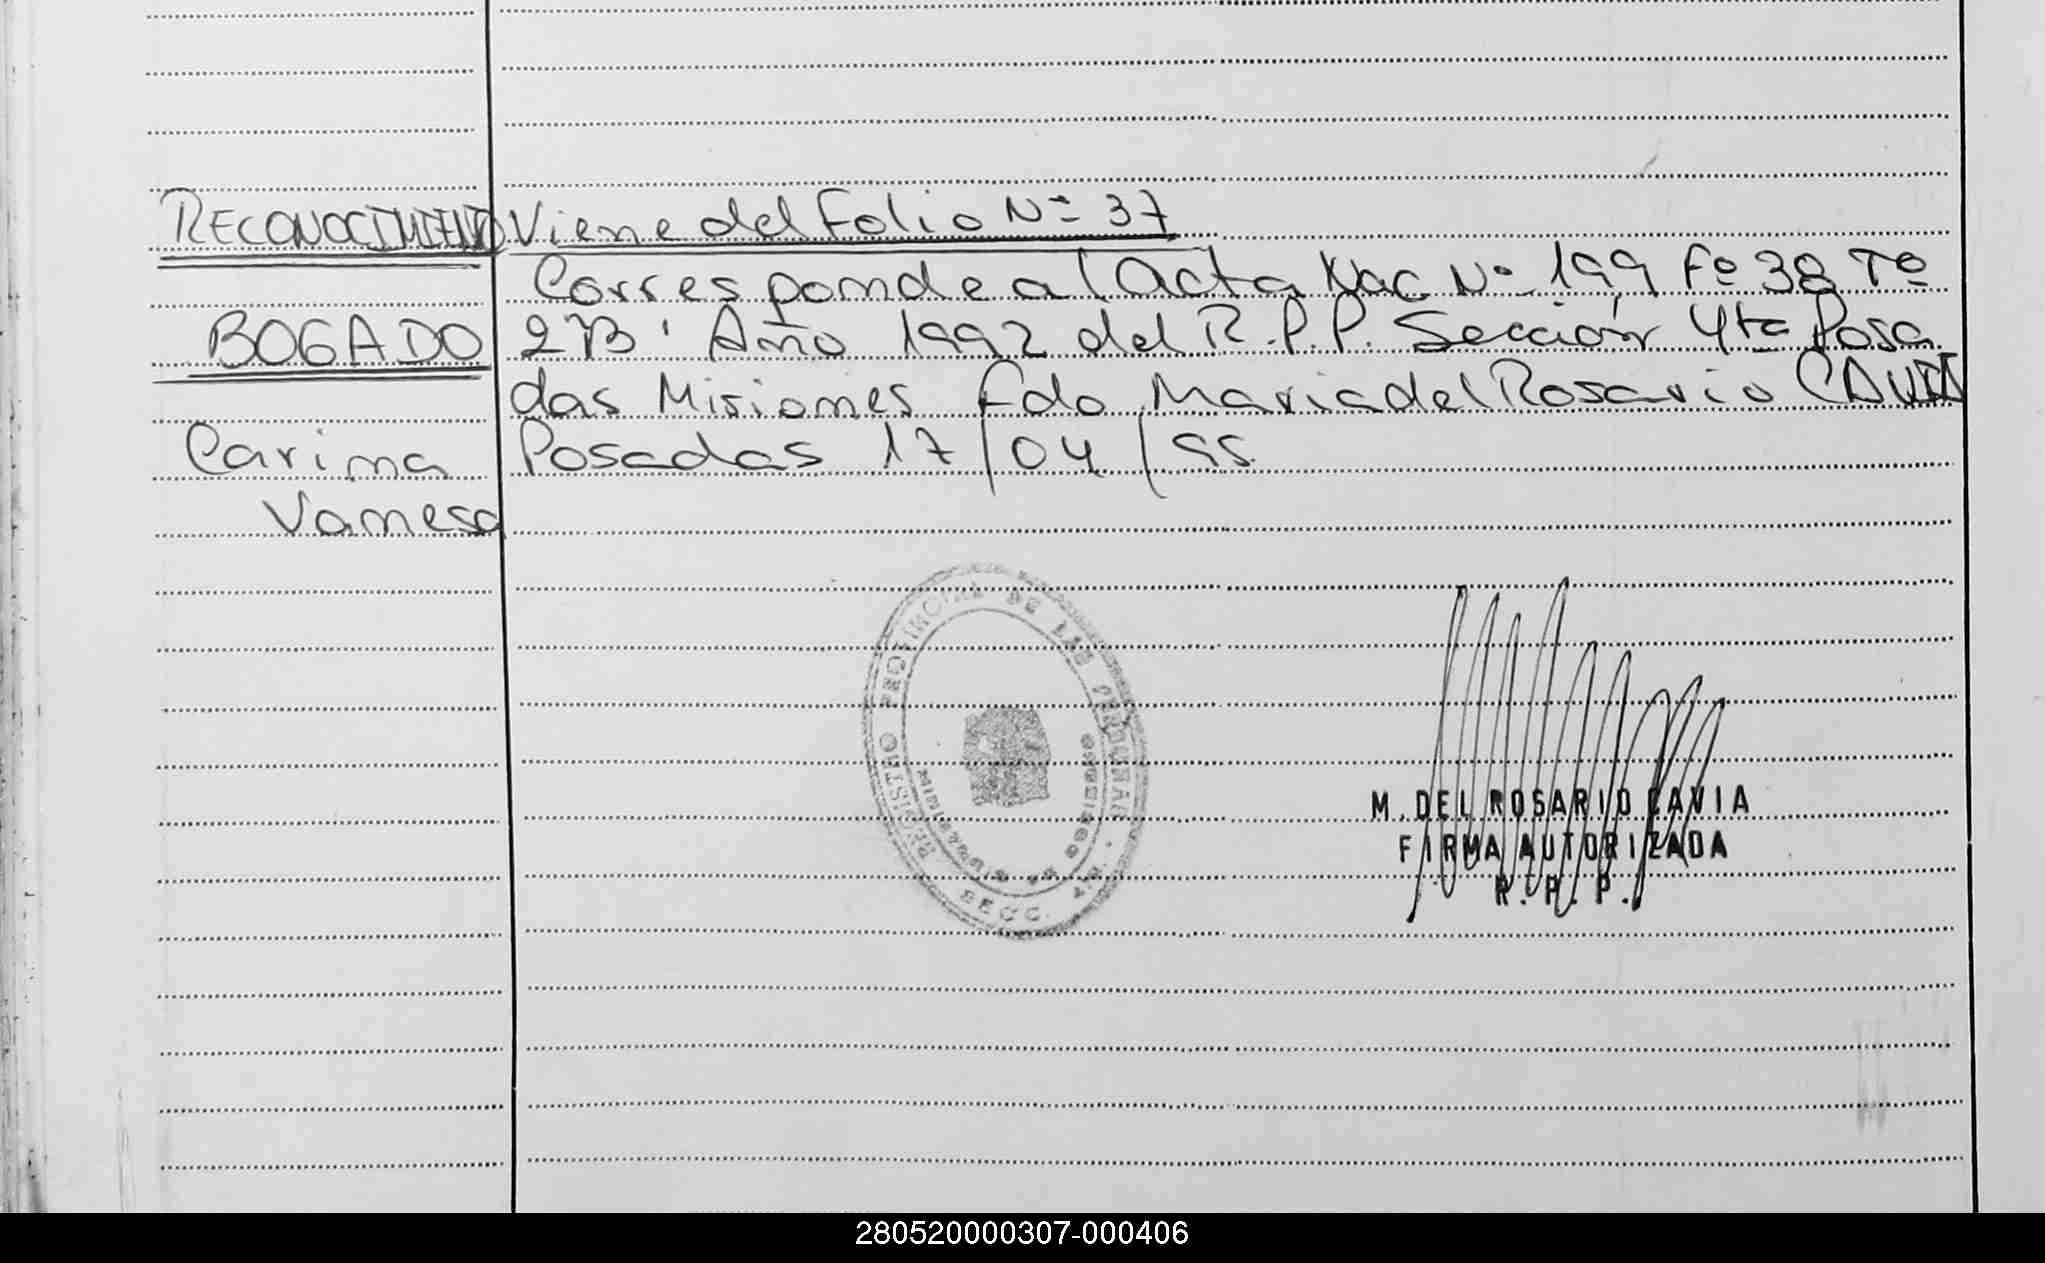 RECONOCIMIENTO Viene del Folio Nº 37
Corresponde al Acta Nac Nº 199 Fº 38 Tº
BOGADO 2 "B" Año 1992 del R.P.P. Sección 4ta Posa
das Misiones Fdo Maria del Rosario CAVIA
Carina Posadas 17/04/95
Vanesa
REGISTRO PROVINCIAL DE LAS PERSONAS
SECC. 4ta.
M. DEL ROSARIO CAVIA
FIRMA AUTORIZADA
R. P. P.
280520000307-000406